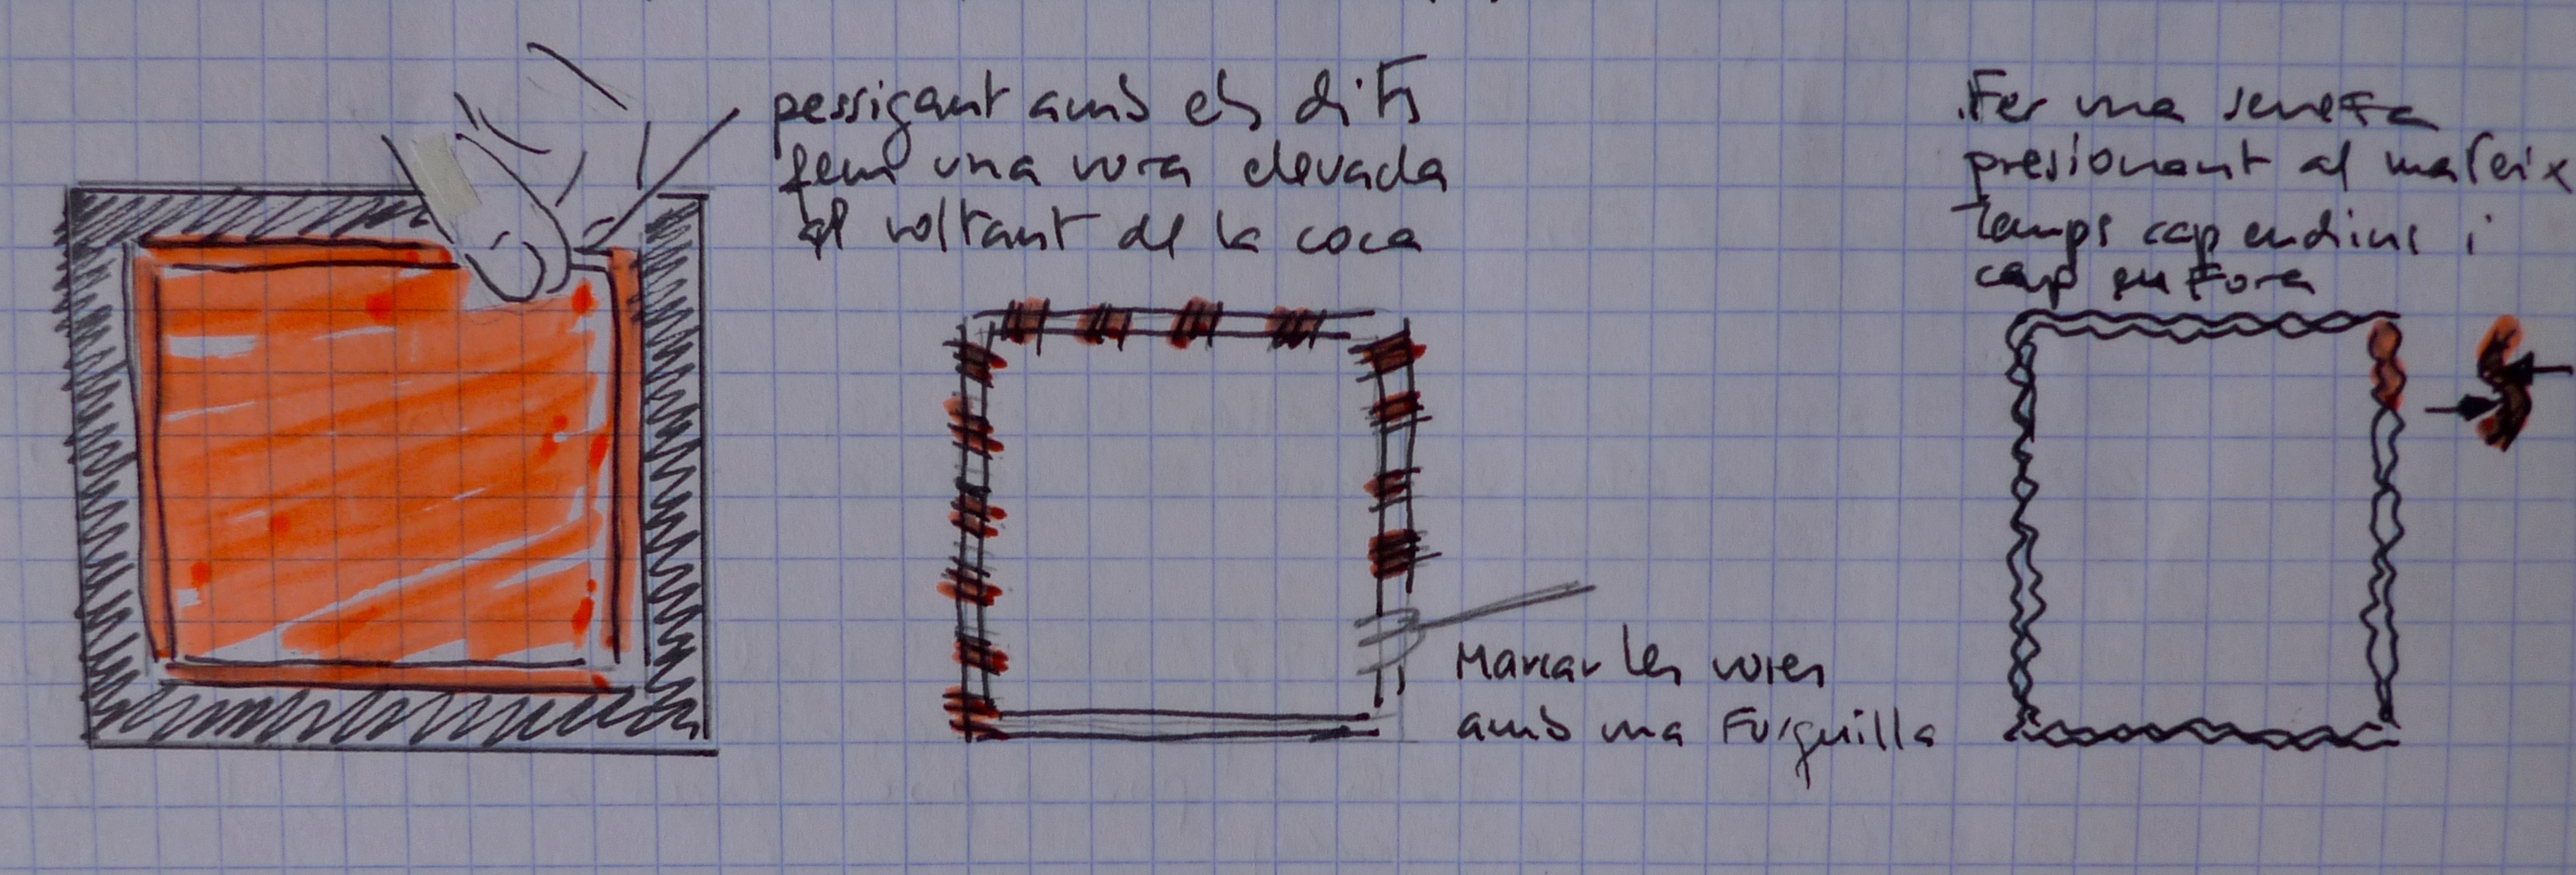 pessigant amb els dits
fem una vora elevada
al voltant de la coca
Marcar les vores
amb una Furquilla
Fer una senefa
presionant al mateix
temps cap endins i
cap en Fora